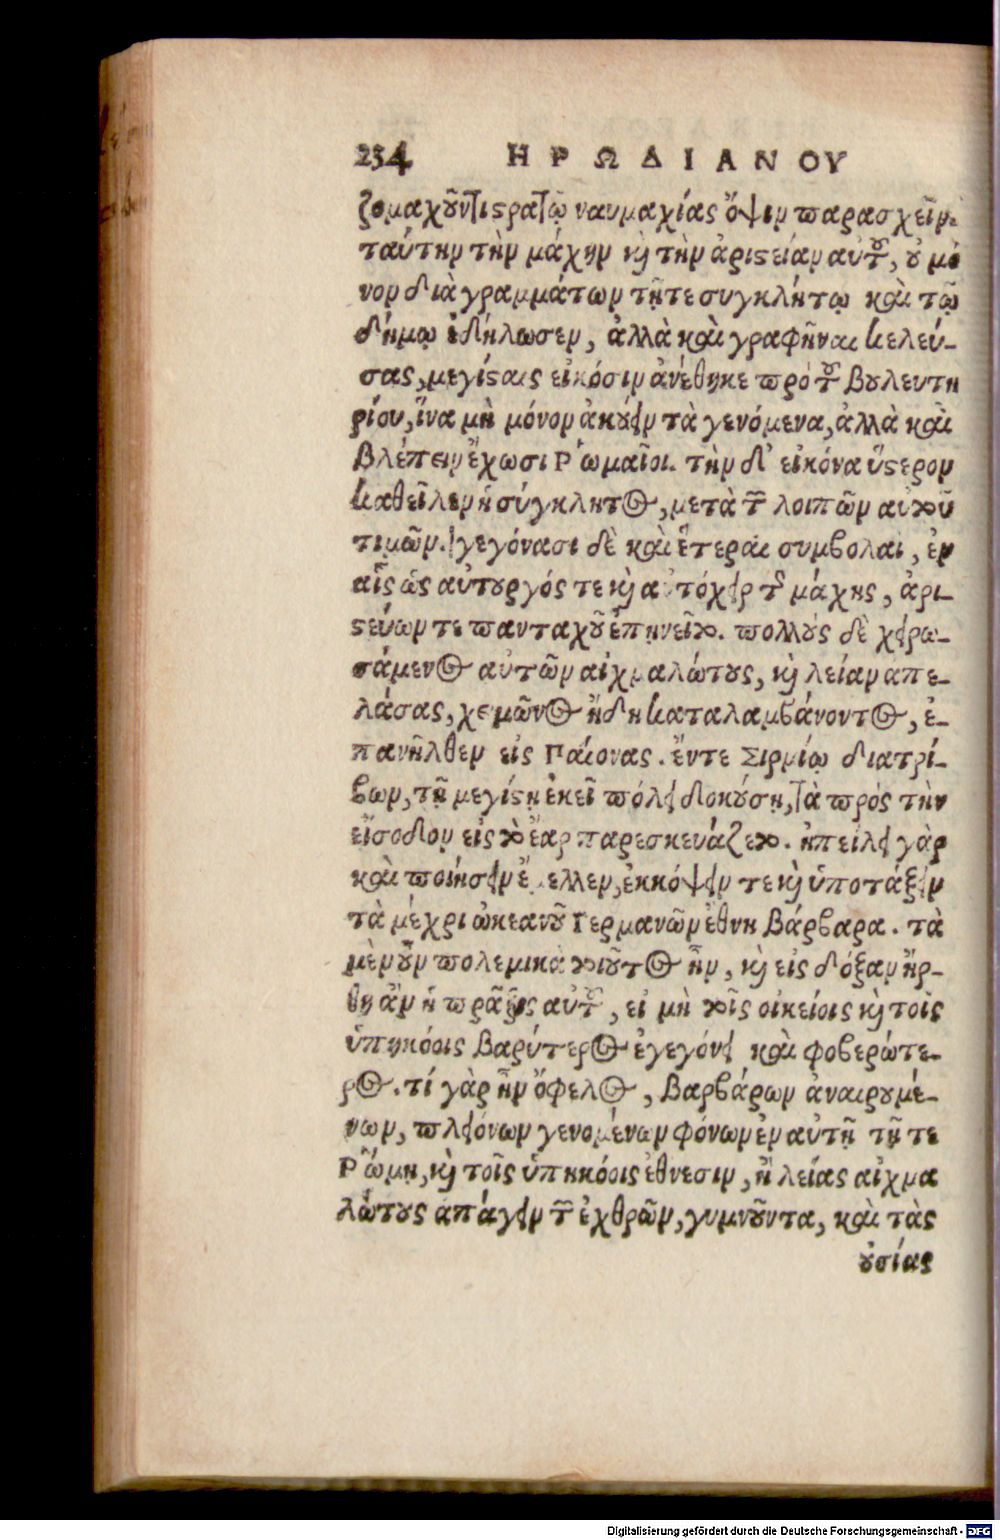 234 ΗΡΩΔΙΑΝΟΥ
ζομαχοῦντι στρατῷ ναυμαχίας ὄψιν παρασχεῖν.
ταύτην τὴν μάχην καὶ τὴν ἀριστείαν αὐτοῦ, οὐ μό
νον διὰ γραμμάτων τῇ τε συγκλήτῳ καὶ τῷ
δήμῳ ἐδήλωσεν, ἀλλὰ καὶ γραφῆναι κελεύ-
σας, μεγίσταις εἰκόσιν ἀνέθηκε πρὸ τοῦ βουλευτη
ρίου, ἵνα μὴ μόνον ἀκούειν τὰ γενόμενα, ἀλλὰ καὶ
βλέπειν ἔχωσι Ῥωμαῖοι. τὴν δ' εἰκόνα ὕστερον
καθεῖλεν ἡ σύγκλητος, μετὰ τῶν λοιπῶν αὐτοῦ
τιμῶν. γεγόνασι δὲ καὶ ἕτεραι συμβολαὶ, ἐν
αἷς ὡς αὐτουργός τε καὶ αὐτόχειρ τῆς μάχης, ἀρι-
στεύων τε πανταχοῦ ἐπῃνεῖτο. πολλοὺς δὲ χειρω-
σάμενος αὐτῶν αἰχμαλώτους, καὶ λείαν απε-
λάσας, χειμῶνος ἤδη καταλαμβάνοντος, ἐ-
πανῆλθεν εἰς Παίονας. ἔντε Σιρμίῳ διατρί-
βων, τῇ μεγίστῃ ἐκεῖ πόλει δοκούσῃ, τὰ πρὸς τὴν
εἴσοδον εἰς τὸ ἔαρ παρεσκευάζετο. ἠπείλει γὰρ
καὶ ποιήσειν ἔμελλεν, ἐκκόψειν τε καὶ ὑποτάξειν
τὰ μέχρι ὠκεανοῦ Γερμανῶν ἔθνη Βάρβαρα. τὰ
μὲν οὖν πολεμικὰ τοιοῦτος ἦν, καὶ εἰς δόξαν ἤρ-
θη ἂν ἡ πρᾶξις αὐτοῦ, εἰ μὴ τοῖς οἰκείοις καὶ τοῖς
ὑπηκόοις βαρύτερος ἐγεγόνει καὶ φοβερώτε-
ρος. τί γὰρ ἦν ὄφελος, Βαρβάρων ἀναιρουμέ-
νων, πλειόνων γενομένων φόνων ἐν αὐτῇ τῇ τε
Ῥώμῃ, καὶ τοῖς ὑπηκόοις ἔθνεσιν, ἢ λείας αἰχμα
λώτους απάγειν τῶν ἐχθρῶν, γυμνοῦντα, καὶ τὰς
οὐσίας
Digitalisierung gefördert durch die Deutsche Forschungsgemeinschaft - DFG